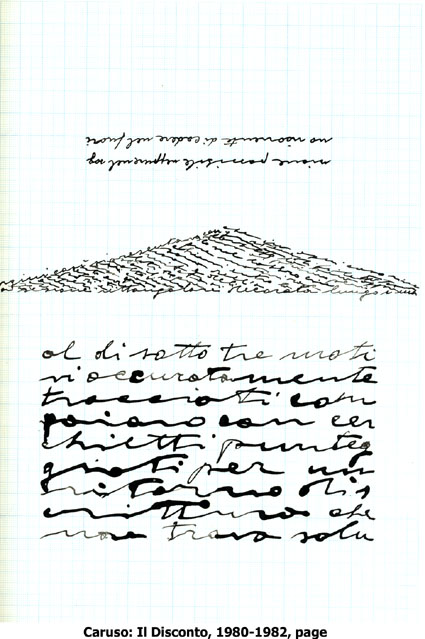 zione possibile neppure nel sog
no ricorrente di cadere nel fuori
al di sotto tre moti
vi accuratamente
tracciati com
paiono con cer
chietti punteg
giati per un
ritorno di s
crittura che
non trova solu
Caruso: Il Disconto, 1980-1982, page